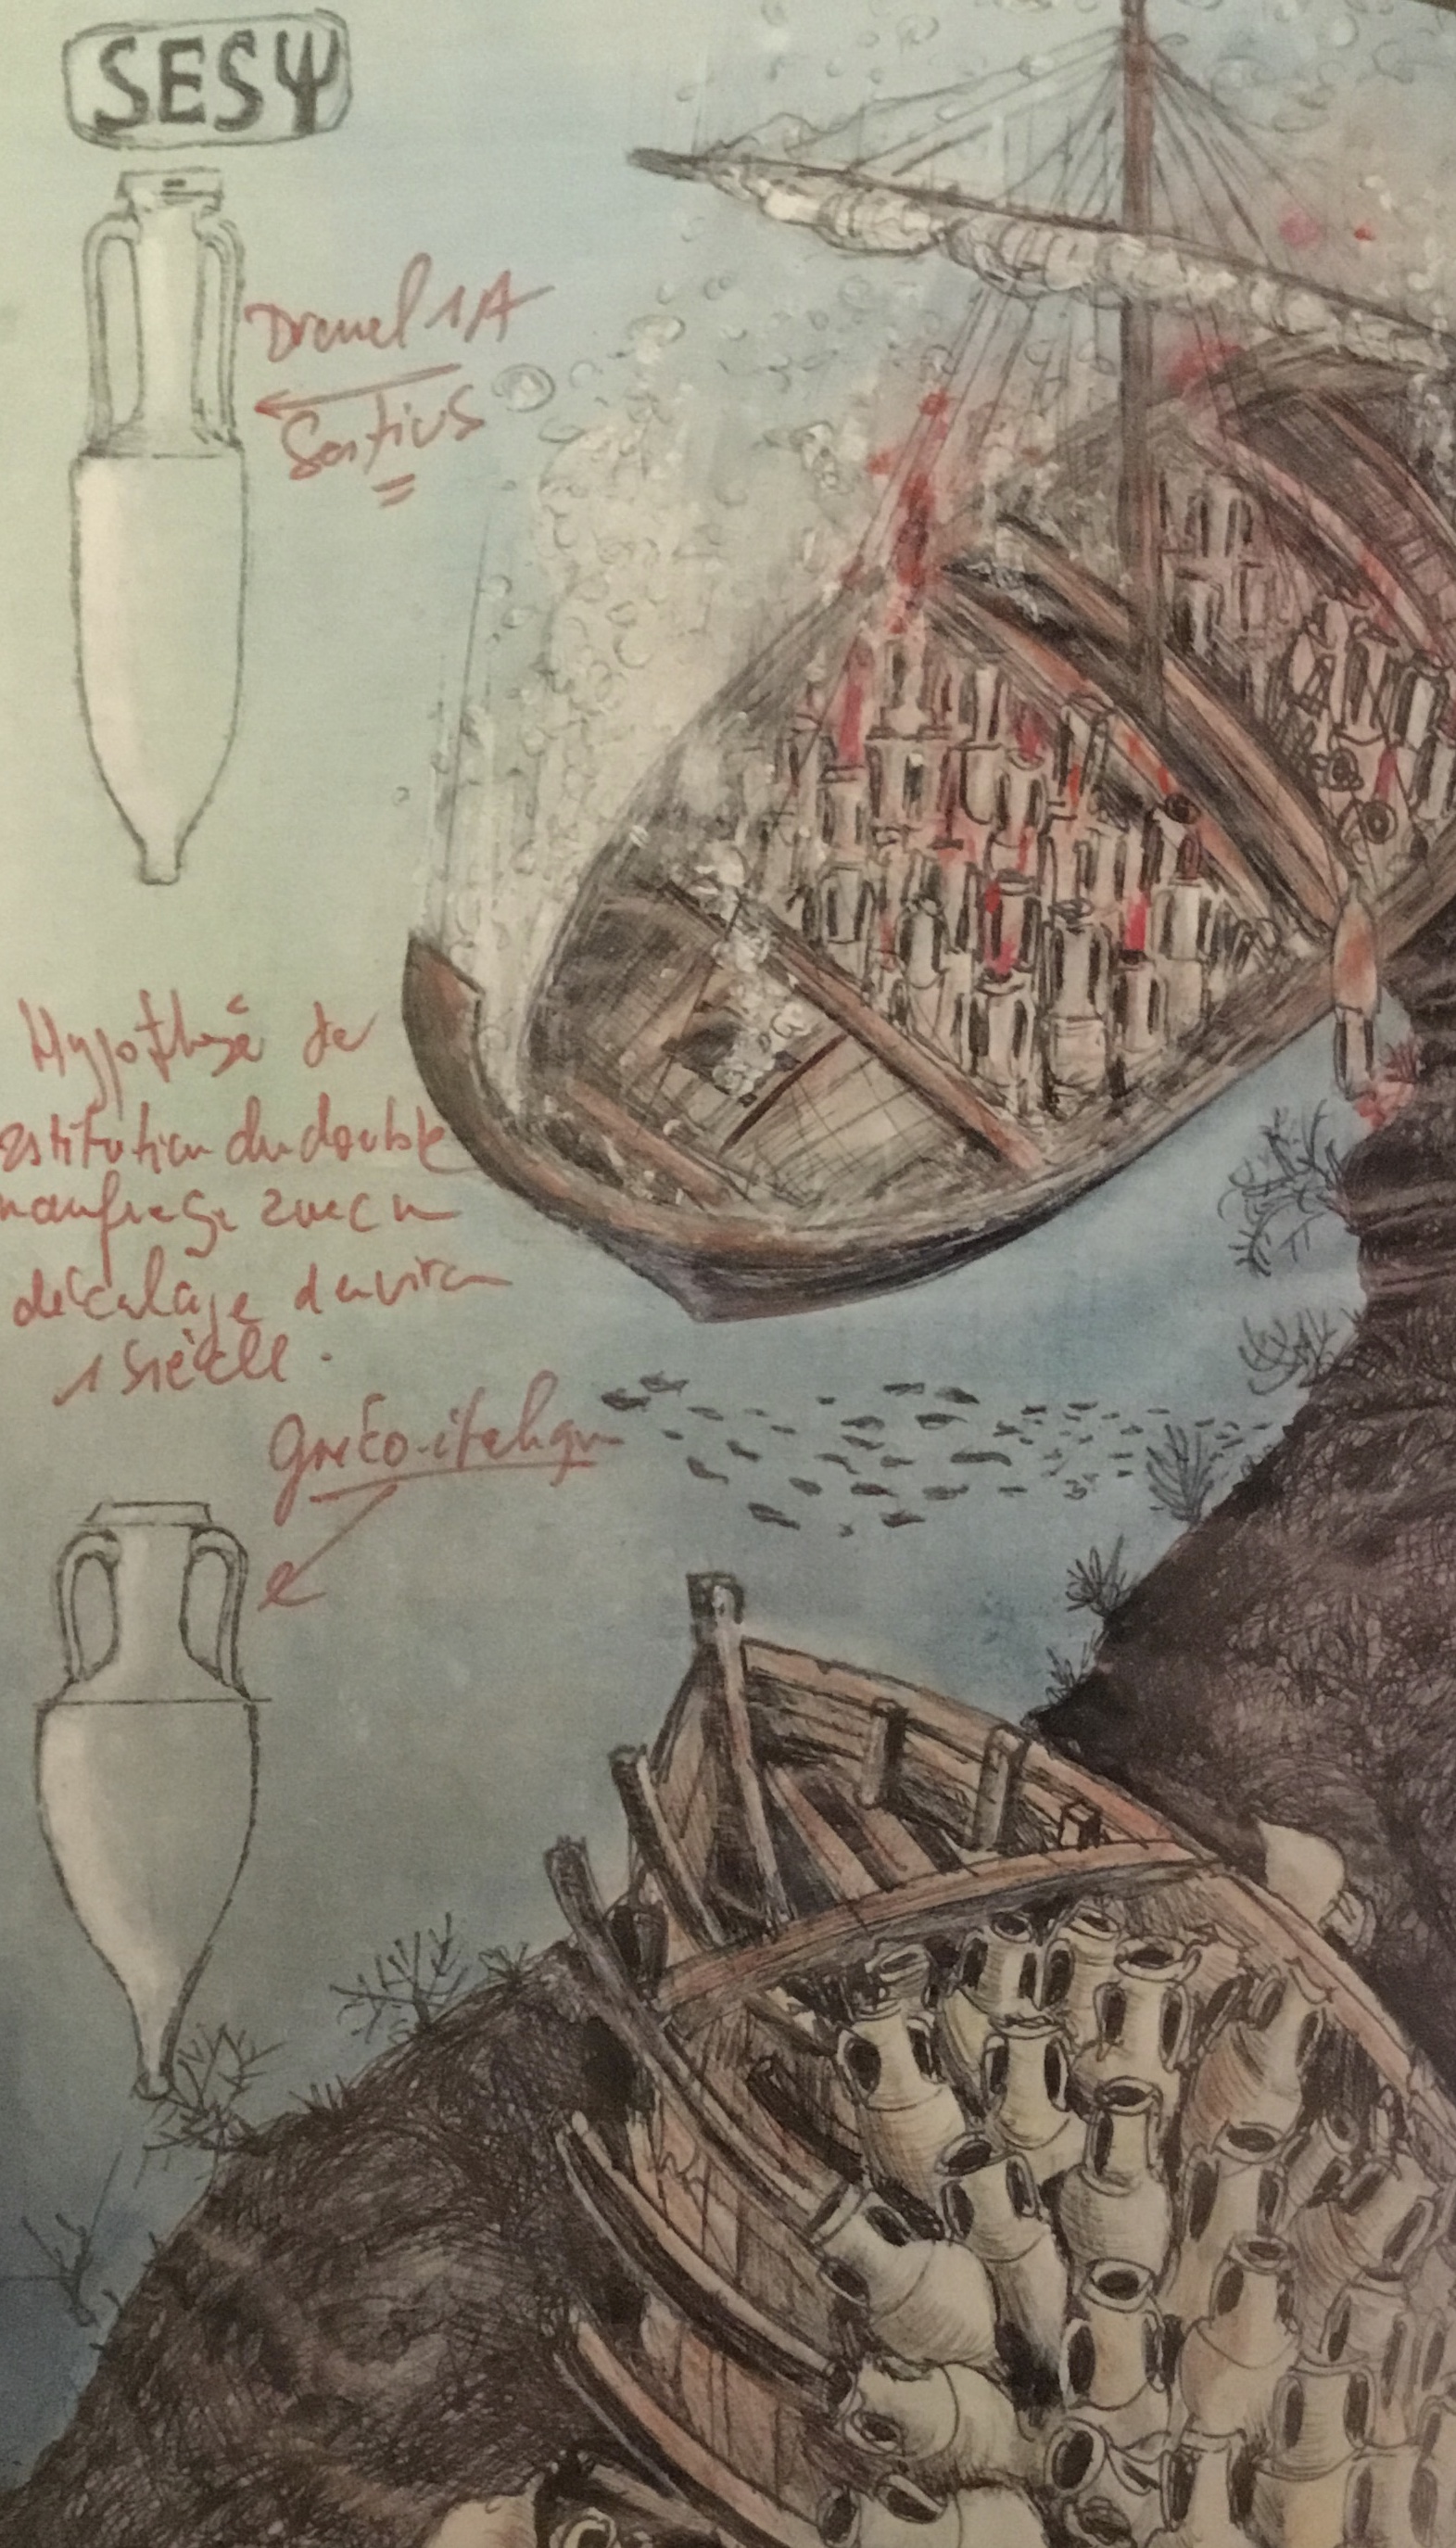 SESΨ
Dressel 1A
Sestius
Hypothèse de
restitution du double
naufrage avec un
décalage d'environ
1 siècle.
gréco-italique